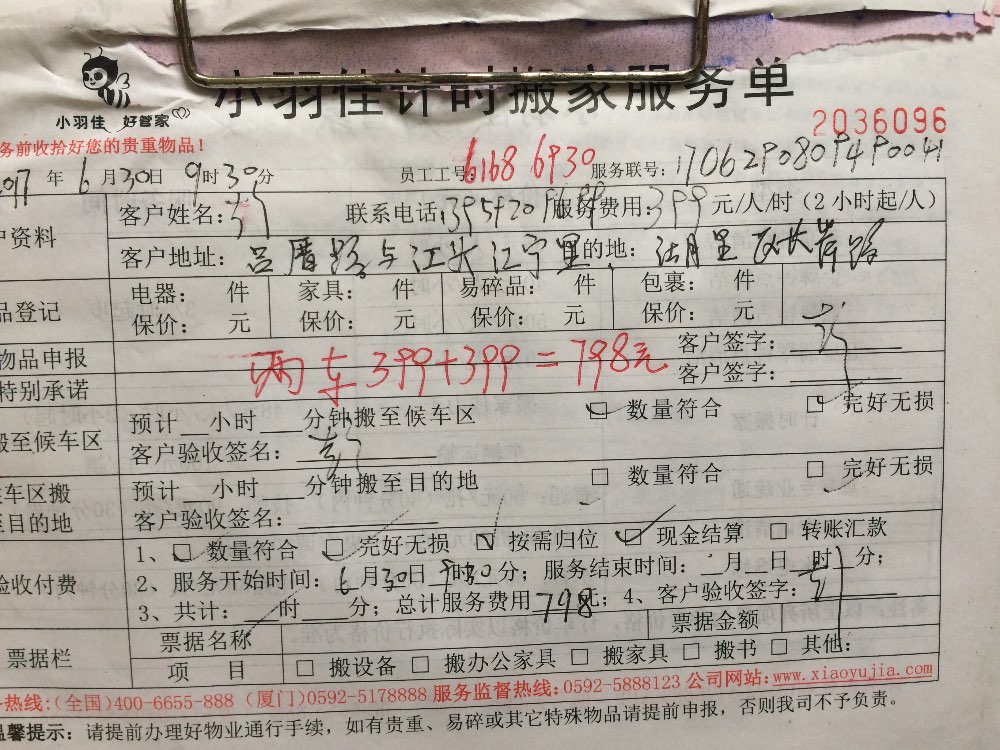 小羽佳计时搬家服务单
小羽佳 好管家
2036096
务前收拾好您的贵重物品！
2017 年 6 月 30 日 9 时 30 分 员工工号: 6168 6930 服务联号: 170629080949004
户资料 客户姓名: 联系电话: 服务费用: 399 元/人/时 (2 小时起/人)
客户地址: 吕厝路与江长江宁里 目的地:
品登记 电器: 件 家具: 件 易碎品: 件 包裹: 件
保价: 元 保价: 元 保价: 元 保价: 元
物品申报 客户签字:
两车 399+399=798元
特别承诺 客户签字:
搬至候车区 预计 小时 分钟搬至候车区 □ 数量符合 □ 完好无损
客户验收签名:
车区搬 预计 小时 分钟搬至目的地 □ 数量符合 □ 完好无损
至目的地 客户验收签名:
1、□ 数量符合 □ 完好无损 □ 按需归位 □ 现金结算 □ 转账汇款
验收付费 2、服务开始时间: 6 月 30 日 9 时 30 分; 服务结束时间: 月 日 时 分;
3、共计: 时 分; 总计服务费用 798 元; 4、客户签字:
票据栏 票据名称 票据金额
项 目 □ 搬设备 □ 搬办公家具 □ 搬家具 □ 搬书 □ 其他:
热线:(全国)400-6655-888 (厦门)0592-5178888 服务监督热线:0592-5888123 公司网站:www.xiaoyujia.com
温馨提示: 请提前办理好物业通行手续，如有贵重、易碎或其它特殊物品请提前申报，否则我司不予负责。